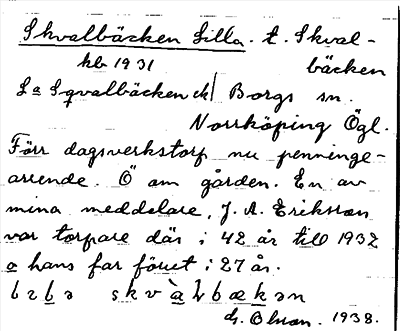 Skvalbäcken Lilla. t. Skval-
kb 1931 bäcken
La Sqvalbäcken ck| Borgs sn.
Norrköping Ögl.
Förr dagsverkstorp nu penninge-
arrende. Ö om gården. En av
mina meddelare, J. A. Eriksson
var torpare där i 42 år till 1932
o hans far förut i 27 år.
skv
1938.